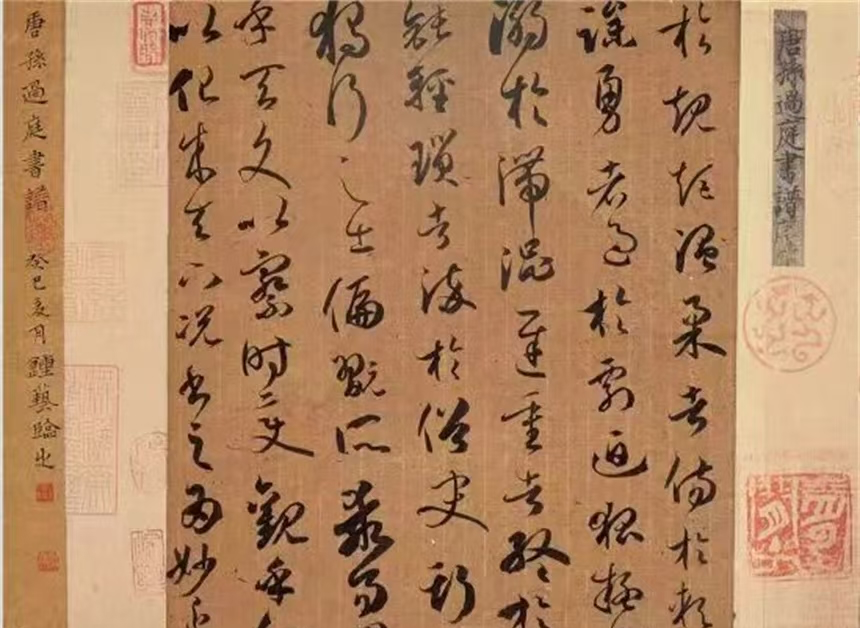 唐孫過庭書譜
於規矩溫柔者傷於軟
躁勇者過於剽迫狐疑
溺於滯澀遲重者終於
鈍輕瑣者淬於俗吏斯
獨行之士偏翫所乖易曰
乎天文以察時變觀乎人
以化成天下況書之為妙近
唐孫過庭書譜
癸巳夏月鍾藝臨之